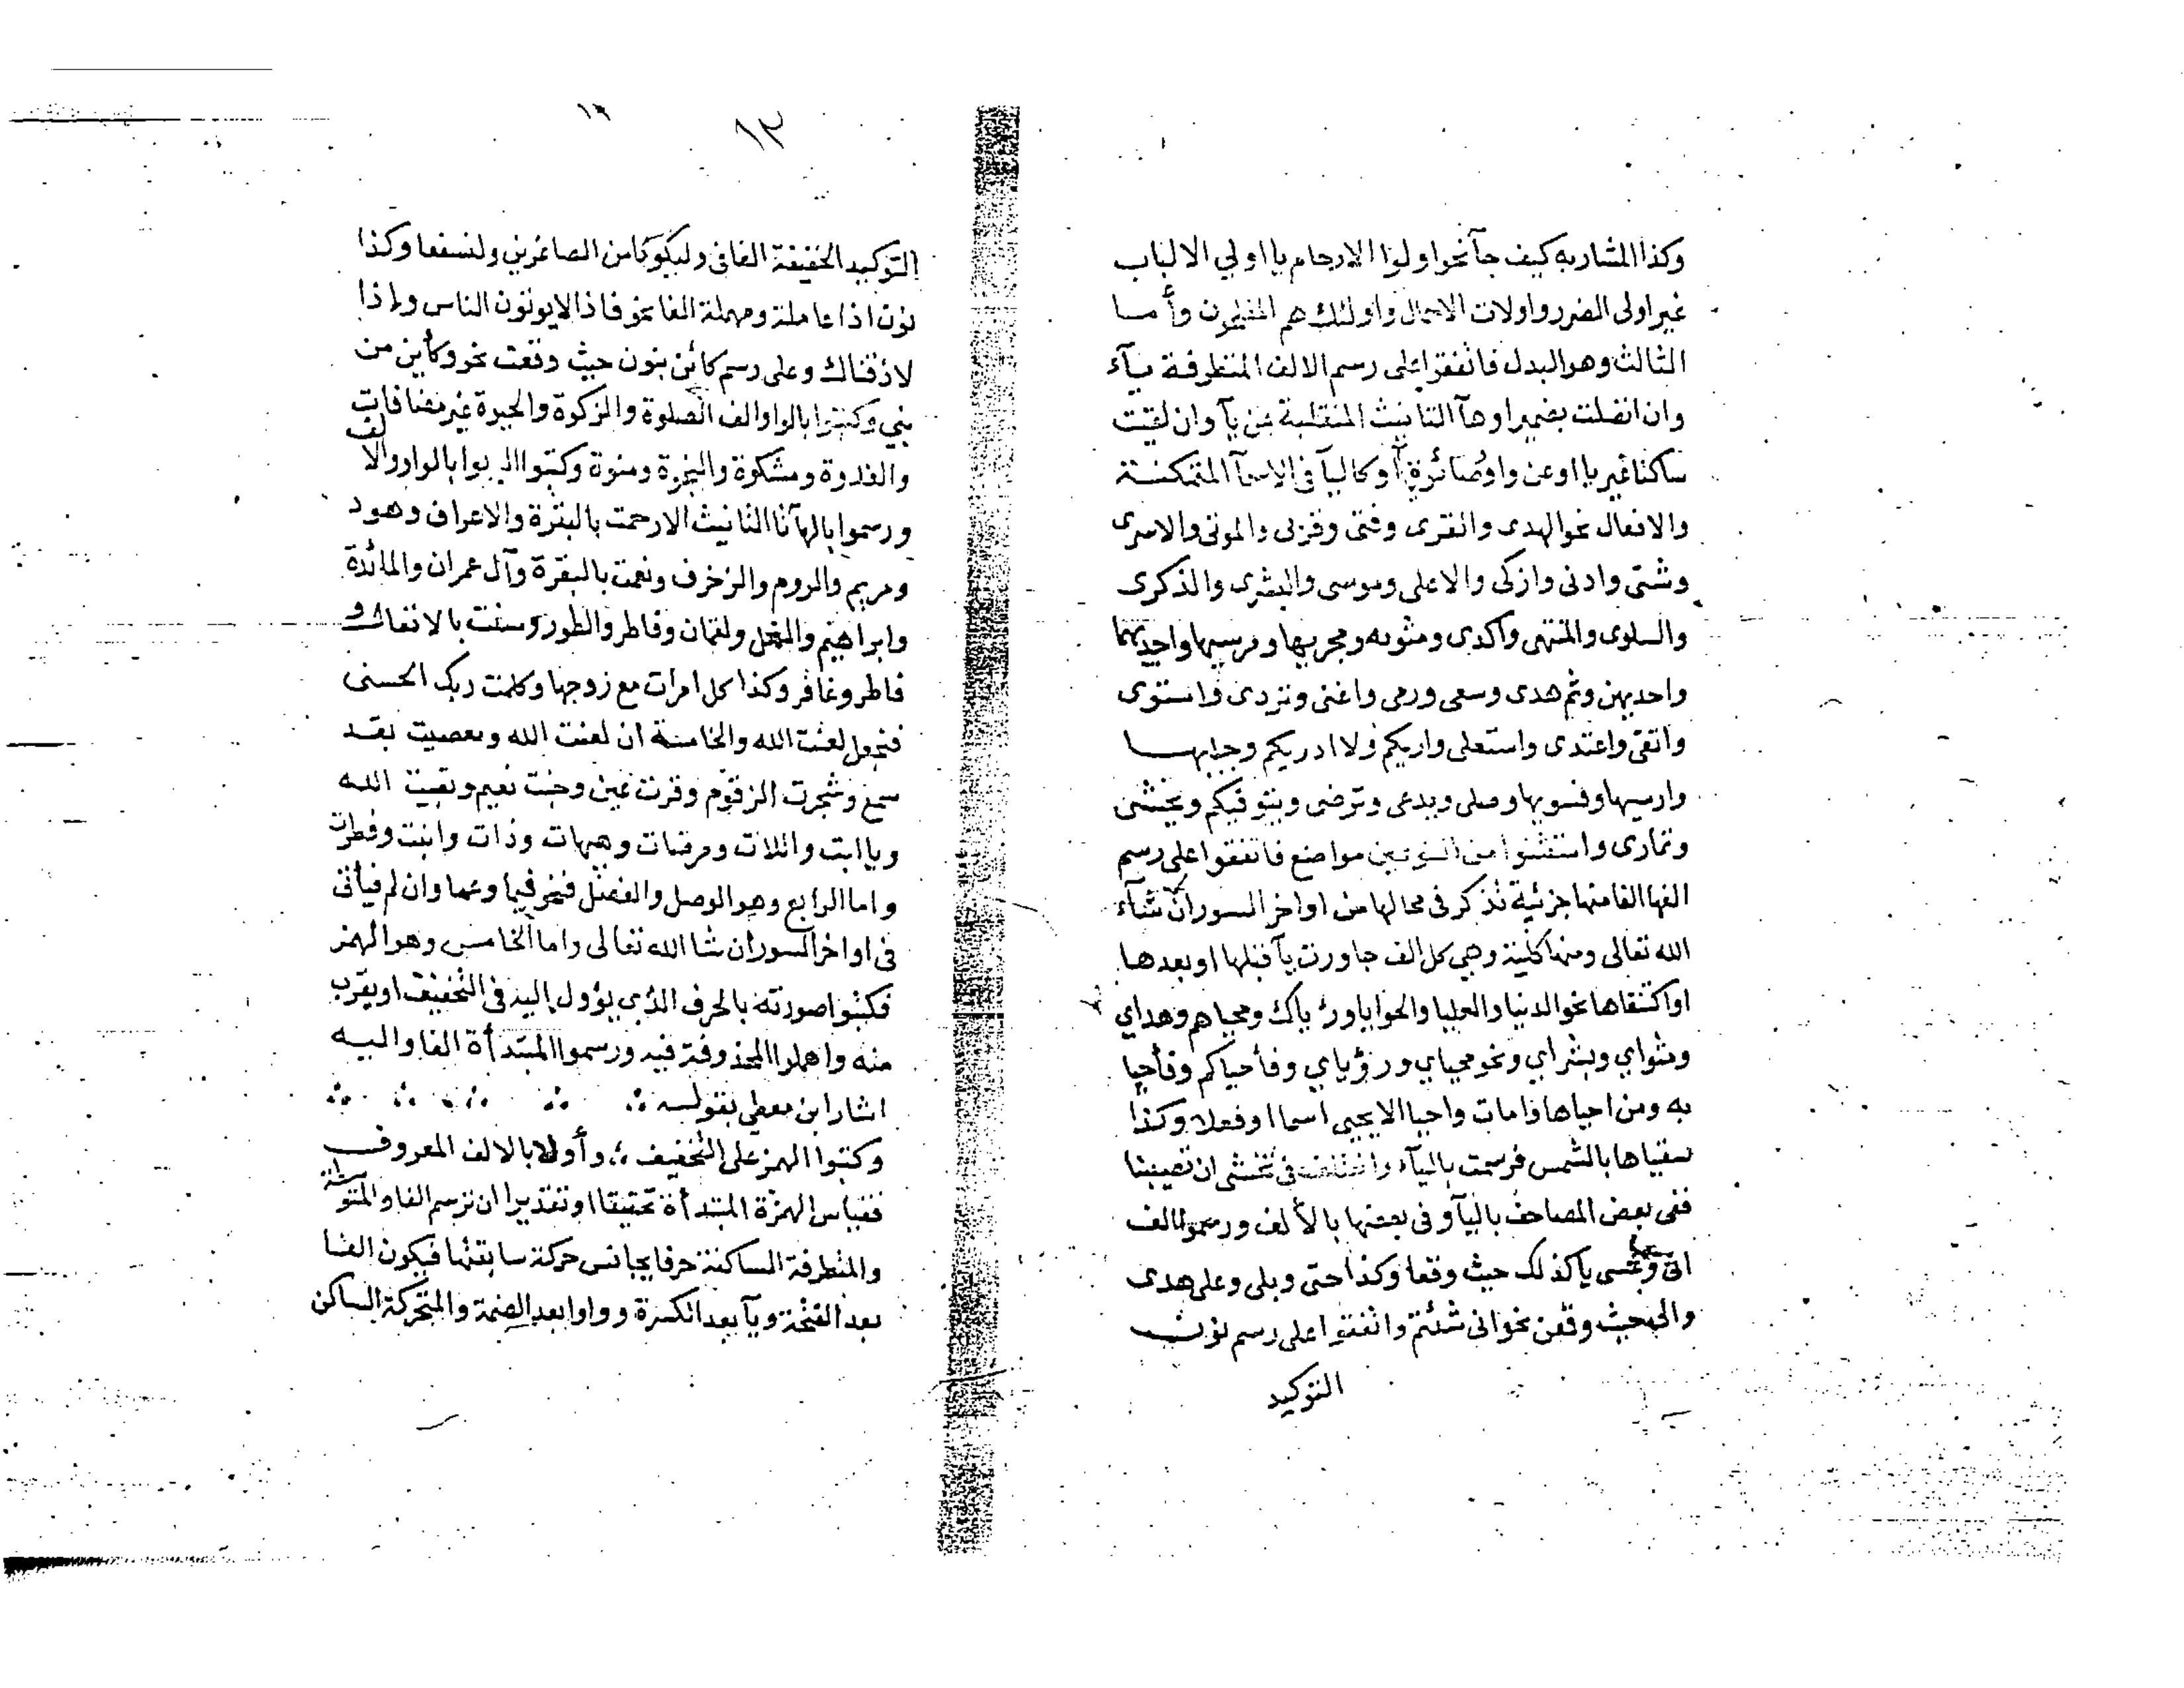 وكذا المشار به كيف جآ نحوا ولوا الارحام يا اولي الالباب
غير اولى الضرر واولات الاحمال واولئك هم المفلحون وأما
الثالث وهو البدل فاتفقوا على رسم الالف المتطرفة يآء
وان اتصلت بضمير او هآ التانيث المنقلبة عن يآ وان لقيت
ساكنا غير يا او عن واو صائرة يآ او كاليآ فى الاسمآ المتمكنة
والافعال نحو الهدى والقرى وفتى وقربى والموتى والاسرى
وشتى وادنى وازكى والاعلى وموسى والبشرى والذكرى
والسلوى والمنتهى واكدى ومثويه ومجريها ومرسيها واحديهما
واحديهن وثم هدى وسعى ورمى واغنى وتردى واستوى
واتقى واعتدى واستعلى واريكم ولا ادريكم وجليها
وارسيها وفسويها وصلى ويدعى وترضى ويتوفيكم ويخشى
وتمارى واستثنوا من النوعين مواضع فاتفقوا على رسم
الفها الفا منها جزئية تذكر فى محالها من اواخر السور ان شآء
الله تعالى ومنها كلية وهي كل الف جاورت يآ قبلها او بعدها
او اكتنفاها نحو الدنيا والعليا والحوايا ورءياك ومحياهم وهداي
ومثواي وبشراي ونحو محياي ورؤياي وفأحياكم وفأحيا
به ومن احياها وامات واحيا الا يحيى اسما او فعلا وكذا
سقياها بالشمس فرسمت باليآء واختلف فى نخشى ان تصيبنا
ففى بعض المصاحف باليآ وفى بعضها بالألف ورسموا الف
انى وعسى يا كذلك حيث وقعا وكذا حتى وبلى وعلى هدى
والى حيث وقعن نحو انى شئتم واتفقوا على رسم نون
التوكيد
١٢
التوكيد الخفيفة الفا فى وليكونا من الصاغرين ولنسفعا وكذا
نون اذا عاملة ومهملة الفا نحو فاذا لا يوتون الناس واذا
لاذقناك وعلى رسم كائن بنون حيث وقعت نحو وكأين من
نبي وكتبوا بالواو الف الصلوة والزكوة والحيوة غير مضافات
والغدوة ومشكوة والنجوة ومنوة وكتبوا الربوا بالواو والالف
ورسموا بالهآ تا التانيث الا رحمت بالبقرة والاعراف وهود
ومريم والروم والزخرف ونعمت بالبقرة وآل عمران والمائدة
وابراهيم والنحل ولقمان وفاطر والطور وسنت بالانفال و
فاطر وغافر وكذا كل امرات مع زوجها وكلمت ربك الحسنى
فنجعل لعنت الله والخامسة ان لعنت الله ومعصيت بقد
سمع وشجرت الزقوم وقرت عين وجنت نعيم وبقيت الله
ويا ابت واللات ومرضات وهيهات وذات وابنت وفطرت
واما الرابع وهو الوصل والفصل فنحو فيما وعما وان لم فيأتى
فى اواخر السور ان شا الله تعالى واما الخامس وهو الهمز
فكتبوا صورته بالحرف الذي يؤول اليه فى التخفيف او يقرب
منه واهملوا المحذوفة فيه ورسموا المبتدأة الفا واليه
اشار ابن معطي بقوله
وكتبوا الهمز على التخفيف وأولا بالالف المعروف
فقياس الهمزة المبتدأة تحقيقا او تقديرا ان ترسم الفا والمتوسطة
والمتطرفة الساكنة حرفا يجانس حركة سابقتها فيكون الفا
بعد الفتحة ويآ بعد الكسرة وواوا بعد الضمة والمتحركة الساكن